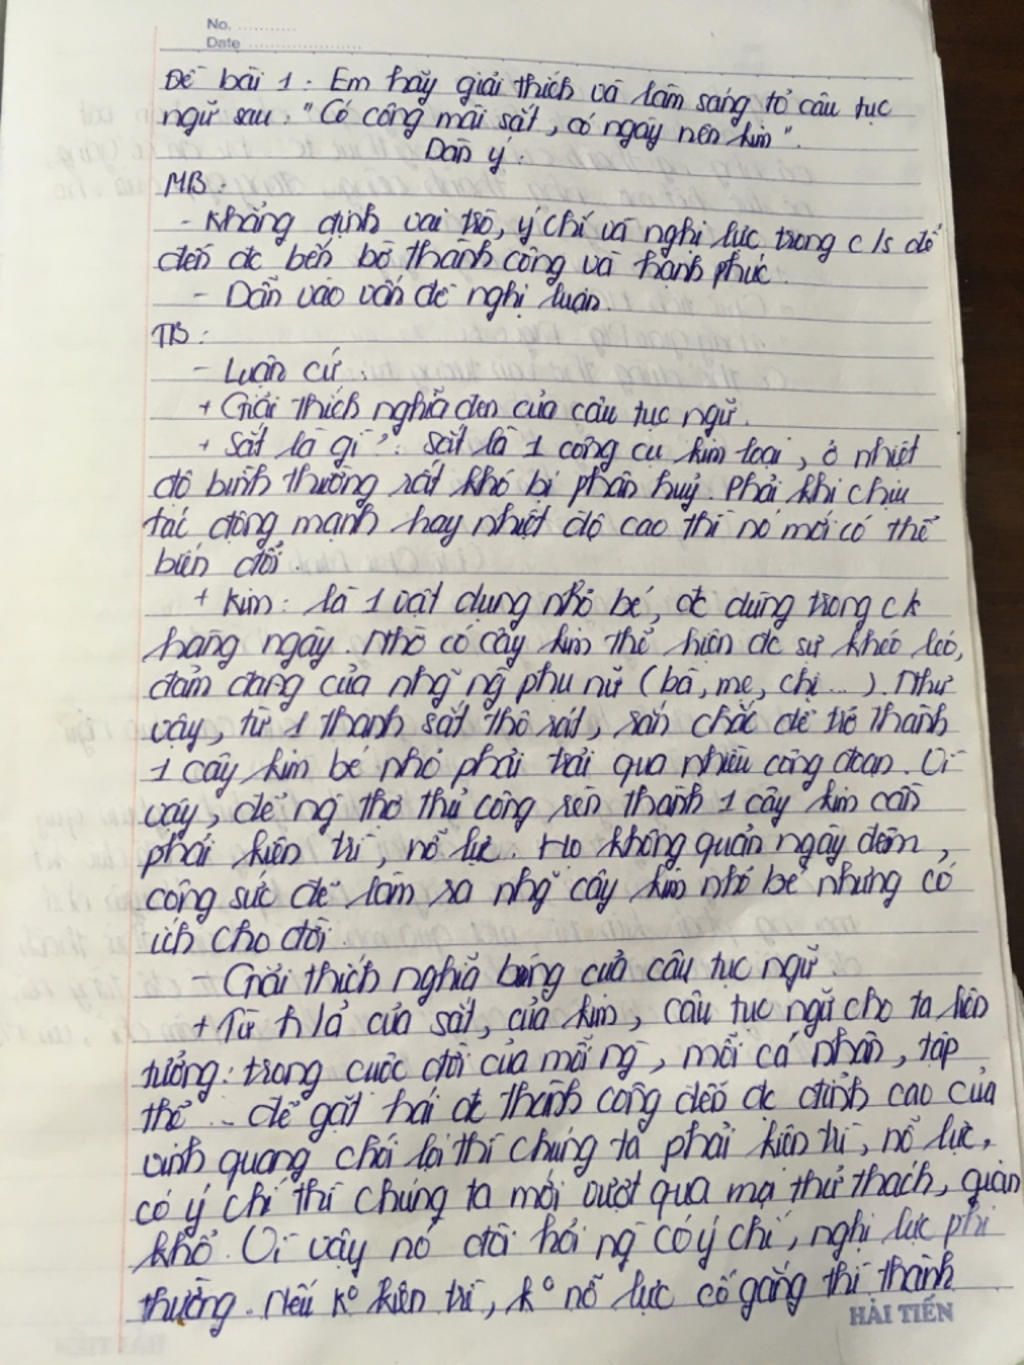 No. ............
Date ........................
Đề bài 1: Em hãy giải thích và làm sáng tỏ câu tục
ngữ sau: "Có công mài sắt, có ngày nên kim".
Dàn ý:
MB:
- Khẳng định vai trò, ý chí và nghị lực trong c/s để
đến đc bến bờ thành công và hạnh phúc.
- Dẫn vào vấn đề nghị luận.
TB:
- Luận cứ:
+ Giải thích nghĩa đen của câu tục ngữ.
+ Sắt là gì?: Sắt là 1 công cụ kim loại, ở nhiệt
độ bình thường rất khó bị phân huỷ. Phải khi chịu
tác động mạnh hay nhiệt độ cao thì nó mới có thể
biến đổi.
+ Kim: là 1 vật dụng nhỏ bé, đc dùng trong c/s
hàng ngày. Nhờ có cây kim thể hiện đc sự khéo léo,
đảm đang của nhg~ ng~ phụ nữ (bà, mẹ, chị...). Như
vậy, từ 1 thanh sắt thô ráp, rắn chắc để trở thành
1 cây kim bé nhỏ phải trải qua nhiều công đoạn. Vì
vậy, để ng thợ thủ công rèn thành 1 cây kim cần
phải kiên trì, nỗ lực. Họ không quản ngày đêm,
công sức để làm ra nhg~ cây kim nhỏ bé nhưng có
ích cho đời.
- Giải thích nghĩa bóng của câu tục ngữ.
+ Từ h/ả của sắt, của kim, câu tục ngữ cho ta liên
tưởng: trong cuộc đời của mỗi ng~, mỗi cá nhân, tập
thể... để gặt hái đc thành công đến đc đỉnh cao của
vinh quang chói lọi thì chúng ta phải kiên trì, nỗ lực,
có ý chí thì chúng ta mới vượt qua mọi thử thách, gian
khổ. Vì vậy nó đòi hỏi ng~ có ý chí, nghị lực phi
thường. Nếu k° kiên trì, k° nỗ lực cố gắng thì thành
HẢI TIẾN